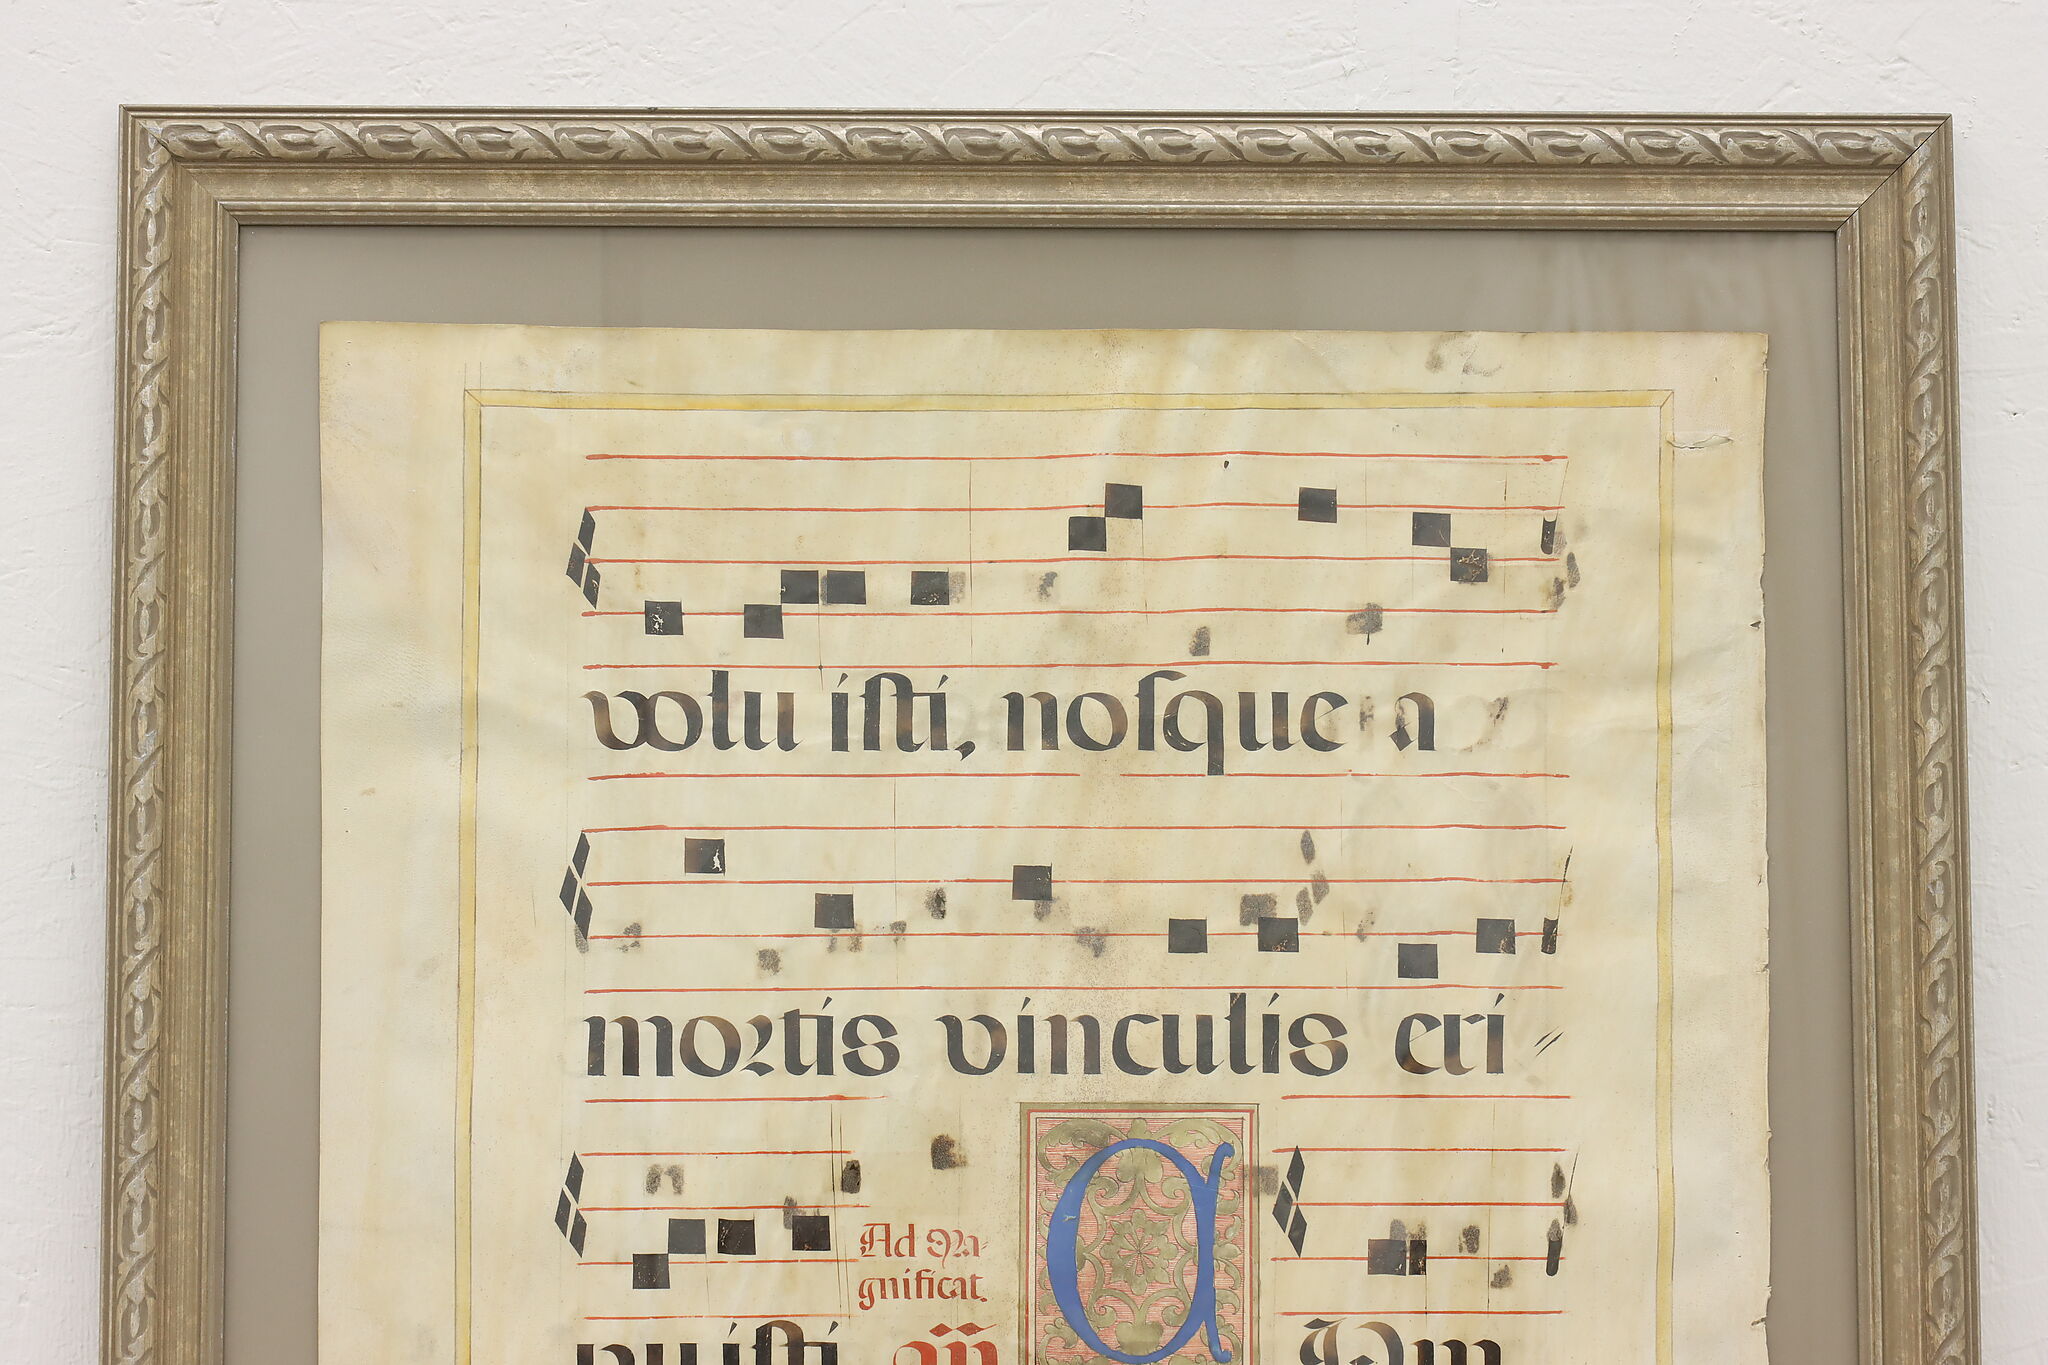 volu isti, nosque a
mortis vinculis eri
Ad Ma-
gnificat.
puisti
A